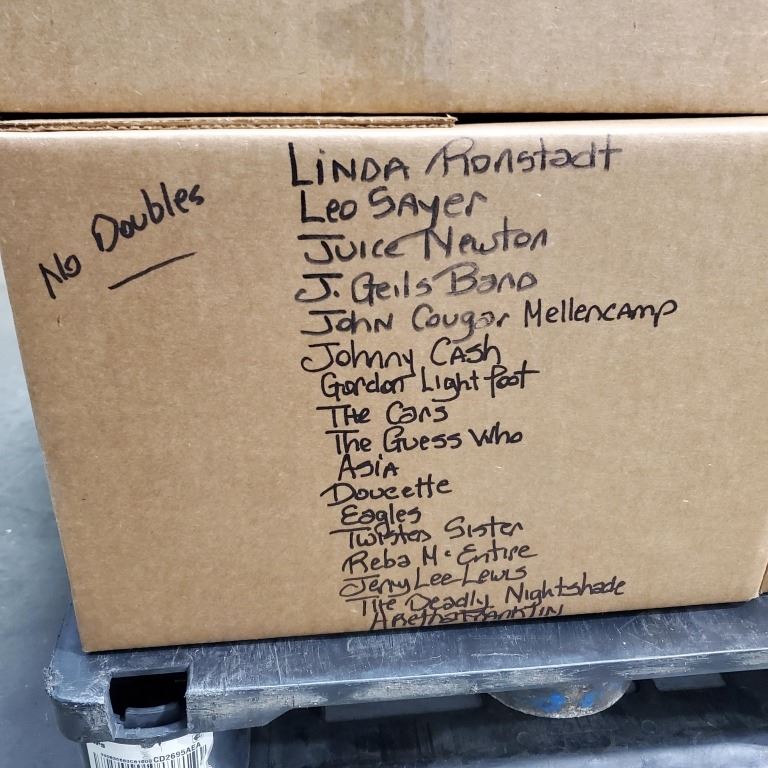 No Doubles
LINDA Ronstadt
Leo SAyer
Juice Newton
J. Geils Band
John Cougar Mellencamp
Johnny Cash
Gordon Lightfoot
The Cars
The Guess Who
Asia
Doucette
Eagles
Twisted Sister
Reba McEntire
Jerry Lee Lewis
The Deadly Nightshade
Aretha Franklin
CD2695AEA